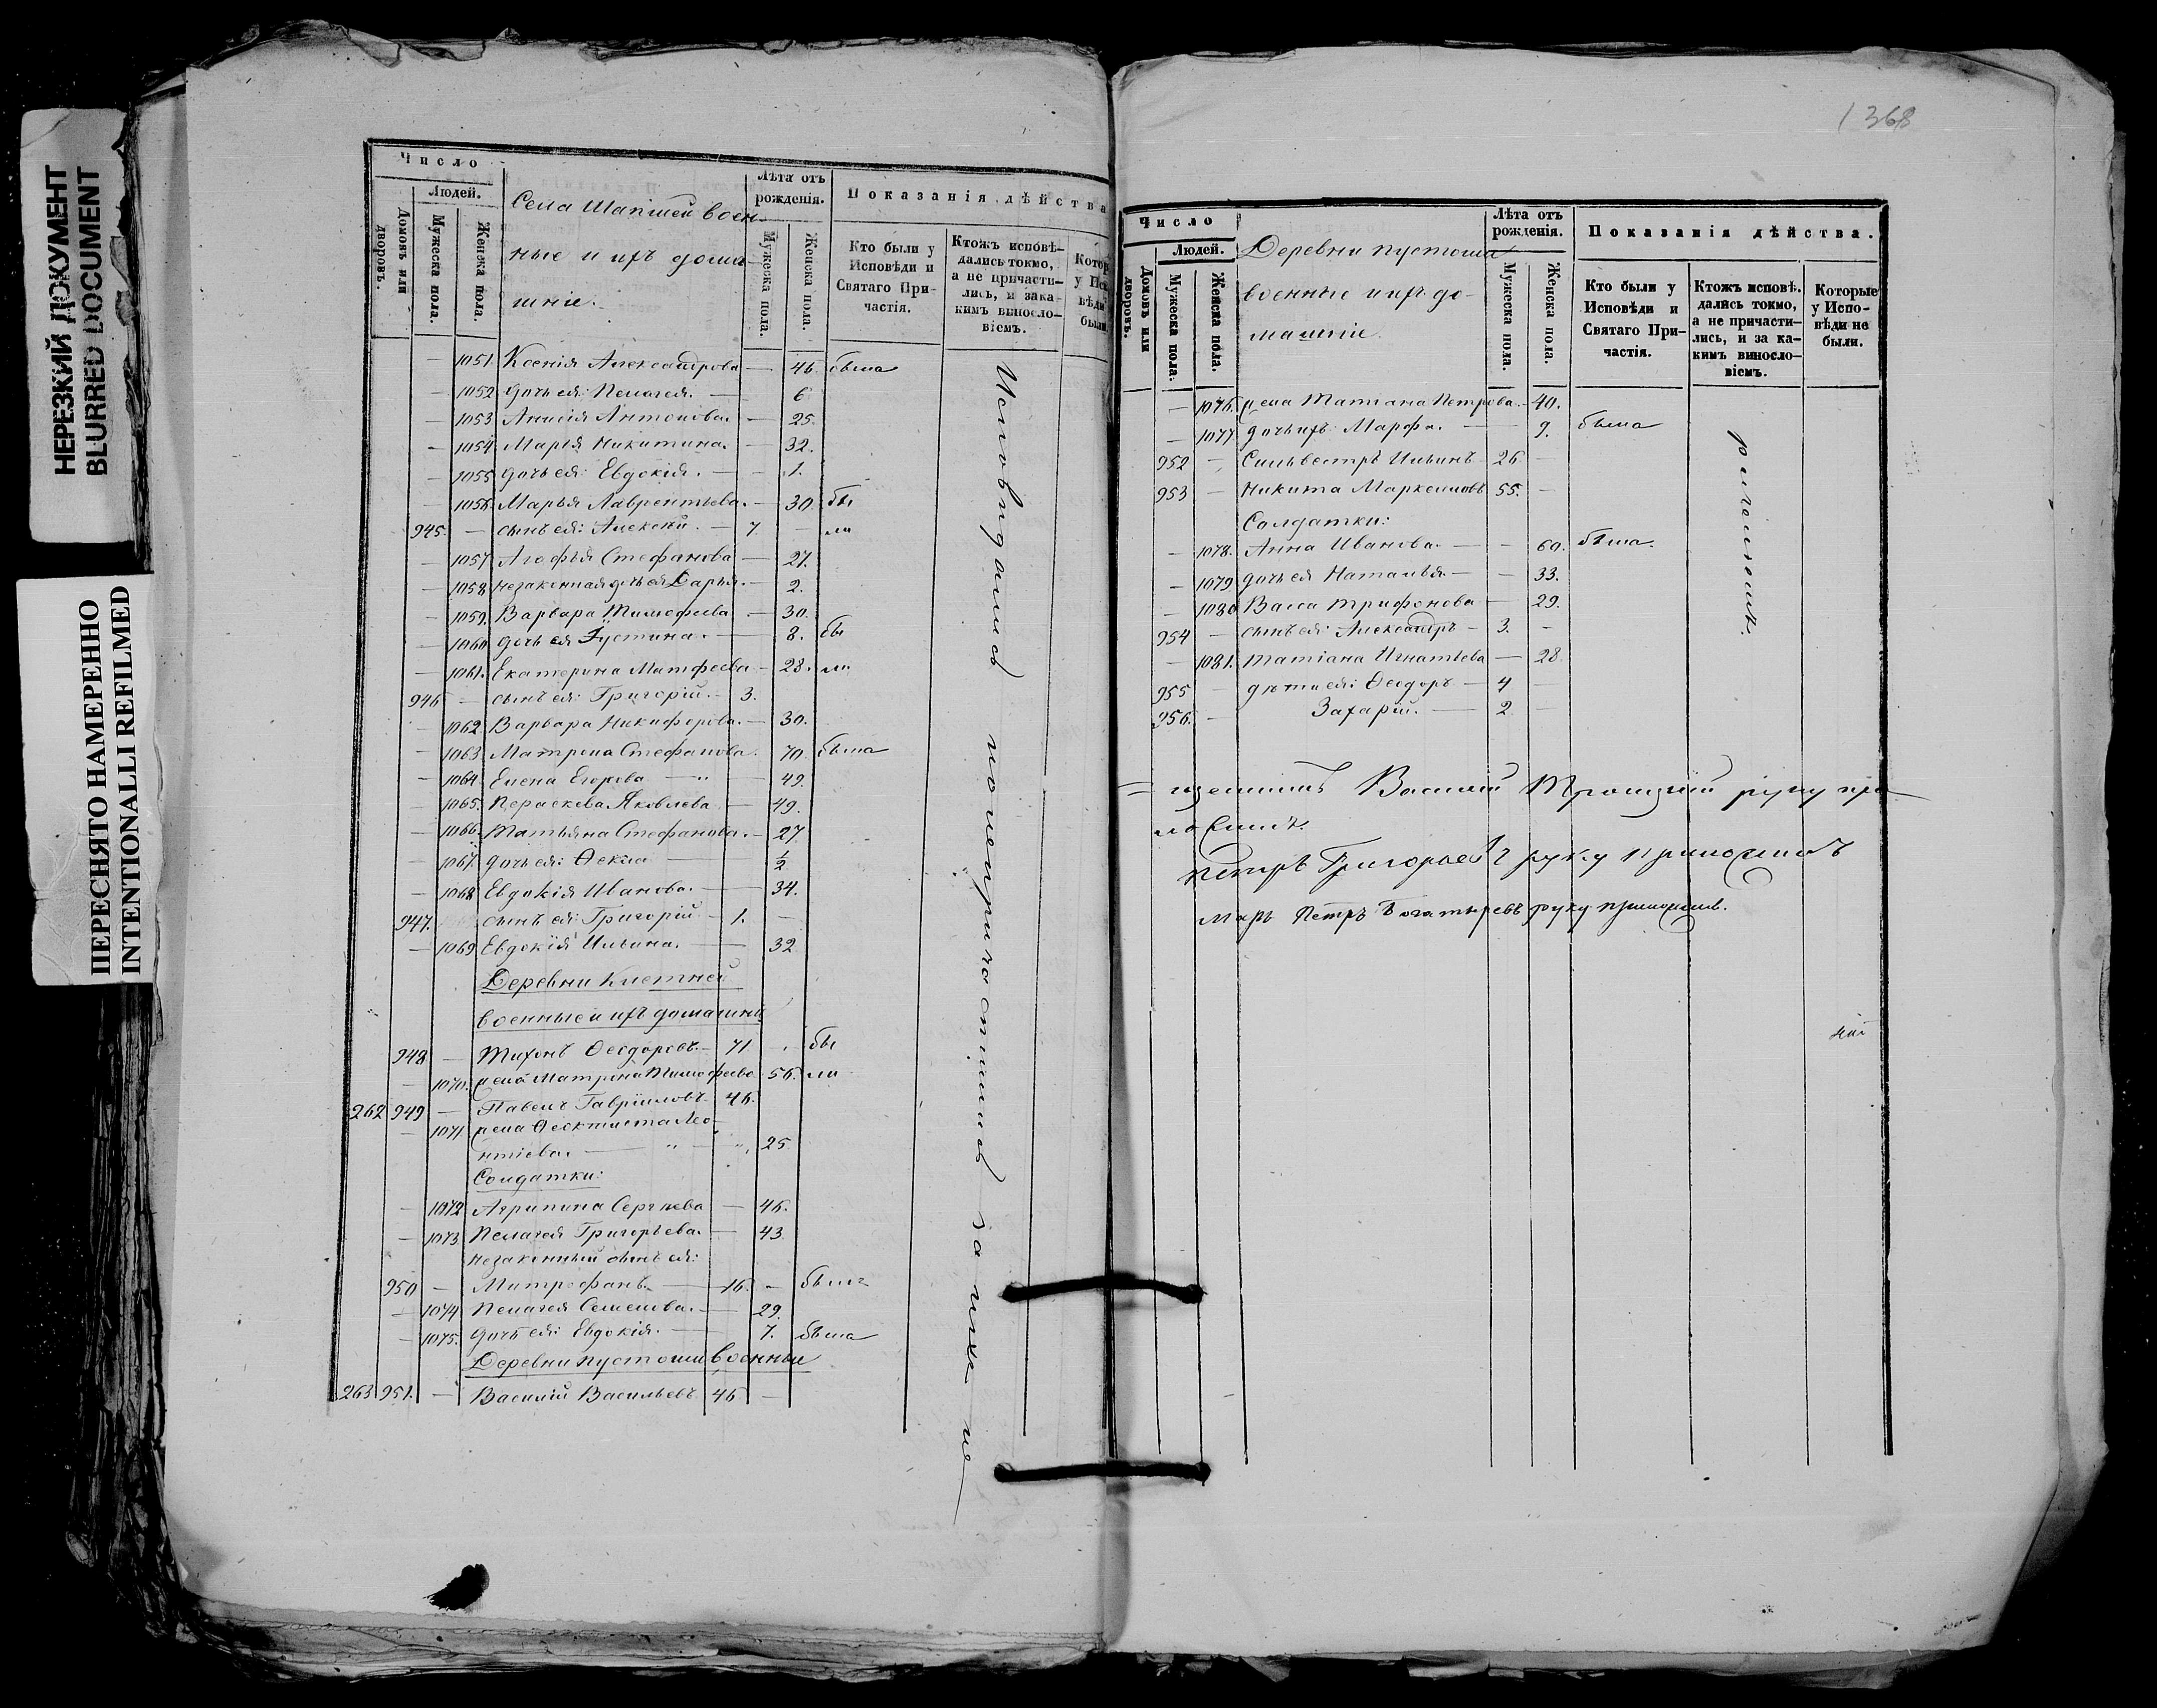 НЕРЕЗКИЙ ДОКУМЕНТ
BLURRED DOCUMENT
ПЕРЕСНЯТО НАМЕРЕННО
INTENTIONALLI REFILMED
Число
Людей.
Домовъ или дворовъ.
Мужеска пола.
Женска пола.
Села Шапшей воен-
ные и ихъ домаш-
шніе.
Лѣта отъ рожденія.
Мужеска пола.
Женска пола.
Показанія дѣйства
Кто были у Исповѣди и Святаго При-частія.
Ктожъ исповѣ-дались токмо, а не причасти-лись, и зака-кимъ винослo-віемъ.
— 1051. Ксенія Александрова — 46. была
— 1052 дочь ея: Пелагея. — 6
— 1053 Анисія Антонова. — 25.
— 1054 Марья Никитина. — 32.
— 1055 дочь ея: Евдокія. — 1.
— 1056. Марья Лаврентьева. — 30. бы
945. — сынъ ея: Алексѣй. — 7. — ли
— 1057. Агофья Стефанова — 27.
— 1058. незаконная дочь ея Дарья. — 2.
— 1059. Варвара Тимофеева — 30.
— 1060 дочь ея Іустина. — 8. бы
— 1061. Екатерина Матфеева — 28. ли
946 — сынъ ея: Григорій. — 3.
— 1062. Варвара Никифорова. — 30.
— 1063 Матрена Стефанова. 70. была
— 1064. Елена Егорова — 49.
— 1065. Параскева Яковлева — 49.
— 1066. Татьяна Стефанова. — 27
— 1067. дочь ея: Ѳекла — ½
— 1068 Евдокія Иванова. — 34.
947. сынъ ея: Григорій — 1. —
— 1069 Евдокія Ильина. — 32
Деревни Клетней
военные и ихъ домашніе
948 — Тихонъ Ѳеодоровъ. — 71 — бы
— 1070. жена Матрена Тимофеева 56. ли
262 949 — Павелъ Гавріиловъ 46.
— 1071. жена Ѳеоктиста Лео-
нтіева. — 25
Солдатки:
— 1072. Агрипина Сергѣева — 46.
— 1073. Пелагея Григорьева. — 43.
незаконный сынъ ея:
950 — Митрофанъ. — 16. — былъ
— 1074 Пелагея Семенова. — 29.
— 1075. дочь ея: Евдокія. — 7. была
Деревни Пустоши военные
263 951. — Василій Васильевъ 46 —
Исповѣдались но не причостились за ихъ не
1368
Число
Людей.
Домовъ или дворовъ.
Мужеска пола.
Женска пола.
Деревни Пустоши
военные и ихъ до-
машніе.
Лѣта отъ рожденія.
Мужеска пола
Женска пола.
Показанія дѣйства.
Кто были у Исповѣди и Святаго При-частія.
Ктожъ исповѣ.дались токмо, а не причасти-лись, и за ка-кимъ винослo-віемъ.
Которые у Испо-вѣди не были.
— 1076. жена Татіана Петрова. — 40.
— 1077 дочь ихъ: Марфа. — 9. была
952 — Сильвестръ Ильинъ 26 —
953 — Никита Маркелловъ 55. —
Солдатки:
— 1078. Анна Иванова. — 60. была.
— 1079 дочь ея Наталья — 33.
— 1080 Васса Трифонова — 29.
954 — сынъ ея: Александръ — 3. —
— 1081. Татіана Игнатьева — 28.
955 — дѣти ея: Ѳеодоръ — 4 —
956. — Захарій. — 2 —
Василій Троицкій руку при-
ложилъ.
Петръ Григорьевъ руку приложилъ
марь Петръ Богатыревъ руку приложилъ.